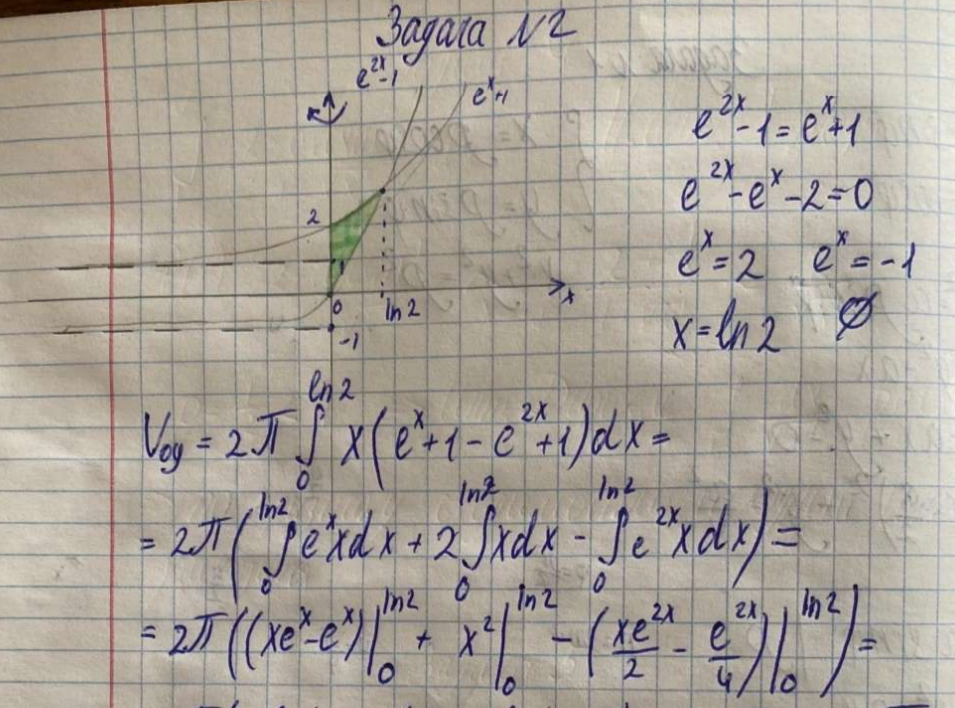 Задача №2
e^{2x}-1
e^x+1
2
1
0
ln2
x
-1
e^{2x}-1=e^x+1
e^{2x}-e^x-2=0
e^x=2 e^x=-1
x=ln2 ∅
V_{oy} = 2π∫_0^{ln2} x(e^x+1-e^{2x}+1)dx=
=2π(∫_0^{ln2} e^x xdx+2∫_0^{ln2} xdx-∫_0^{ln2} e^{2x} xdx)=
=2π((xe^x-e^x)|_0^{ln2} + x^2|_0^{ln2} - (\frac{xe^{2x}}{2} - \frac{e^{2x}}{4})|_0^{ln2})=